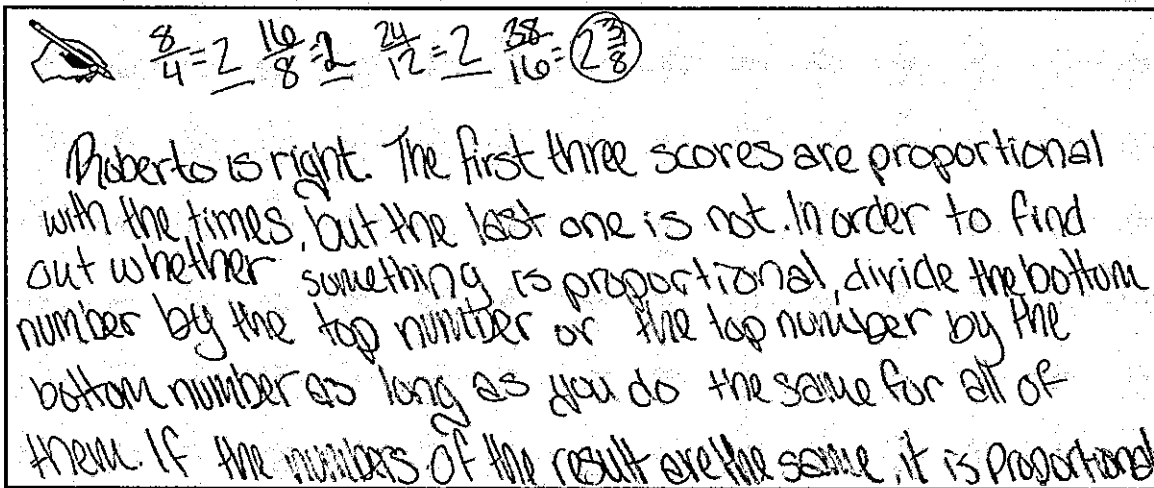 8/4 = 2 16/8 = 2 24/12 = 2 38/16 = 2 3/8
Roberto is right. The first three scores are proportional
with the times, but the last one is not. In order to find
out whether something is proportional, divide the bottom
number by the top number or the top number by the
bottom number as long as you do the same for all of
them. If the numbers of the result are the same, it is proportional